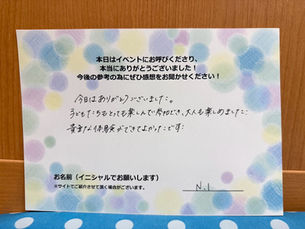 本日はイベントにお呼びくださり、
本当にありがとうございました！
今後の参考の為にぜひ感想をお聞かせください！
今日はありがとうございました。
子どもたちもとても楽しんで参加でき、大人も楽しめました。
貴重な体験ができてよかったです！
お名前（イニシャルでお願いします）
※サイトでご紹介させて頂く場合がございます。
N.I